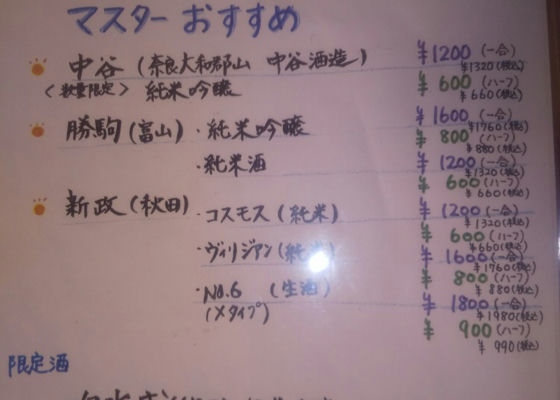 マスター おすすめ
中谷 (奈良大和郡山 中谷酒造) ¥1200 (一合)
¥1320(税込)
<数量限定> 純米吟醸 ¥600 (ハーフ)
¥660(税込)
勝駒(富山)・純米吟醸 ¥1600 (一合)
¥1760(税込)
¥800 (ハーフ)
¥880(税込)
・純米酒 ¥1200 (一合)
¥1320(税込)
¥600 (ハーフ)
¥660(税込)
新政(秋田)・コスモス(純米) ¥1200(一合)
¥1320(税込)
¥600(ハーフ)
¥660(税込)
・ヴィリジアン(純米) ¥1600(一合)
¥1760(税込)
¥800(ハーフ)
¥880(税込)
・No.6 (生酒) ¥1800(一合)
(Xタイプ) ¥1980(税込)
¥900(ハーフ)
¥990(税込)
限定酒